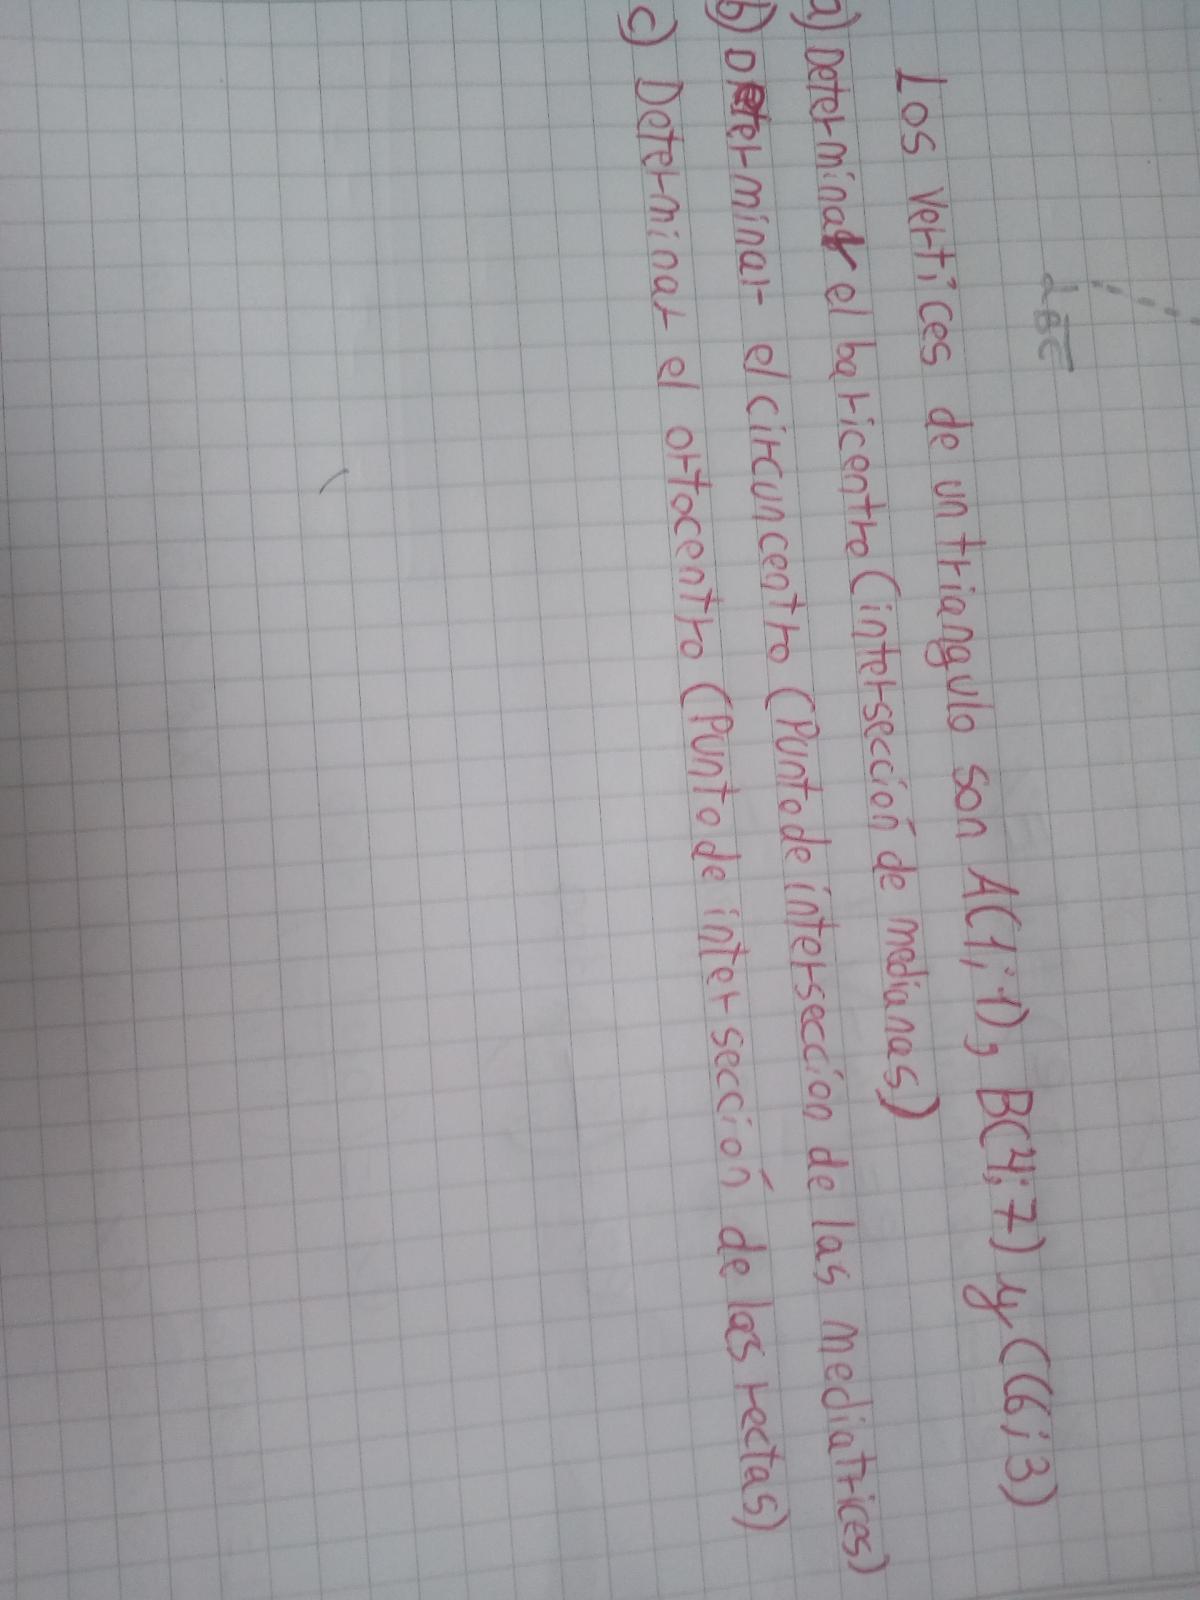 L BC
Los vertices de un triangulo son A(1;1), B(4;7) y C(6;3)
a) Determinar el baricentro (intersección de medianas)
b) Determinar el circuncentro (Punto de intersección de las mediatrices)
c) Determinar el ortocentro (Punto de intersección de las rectas)